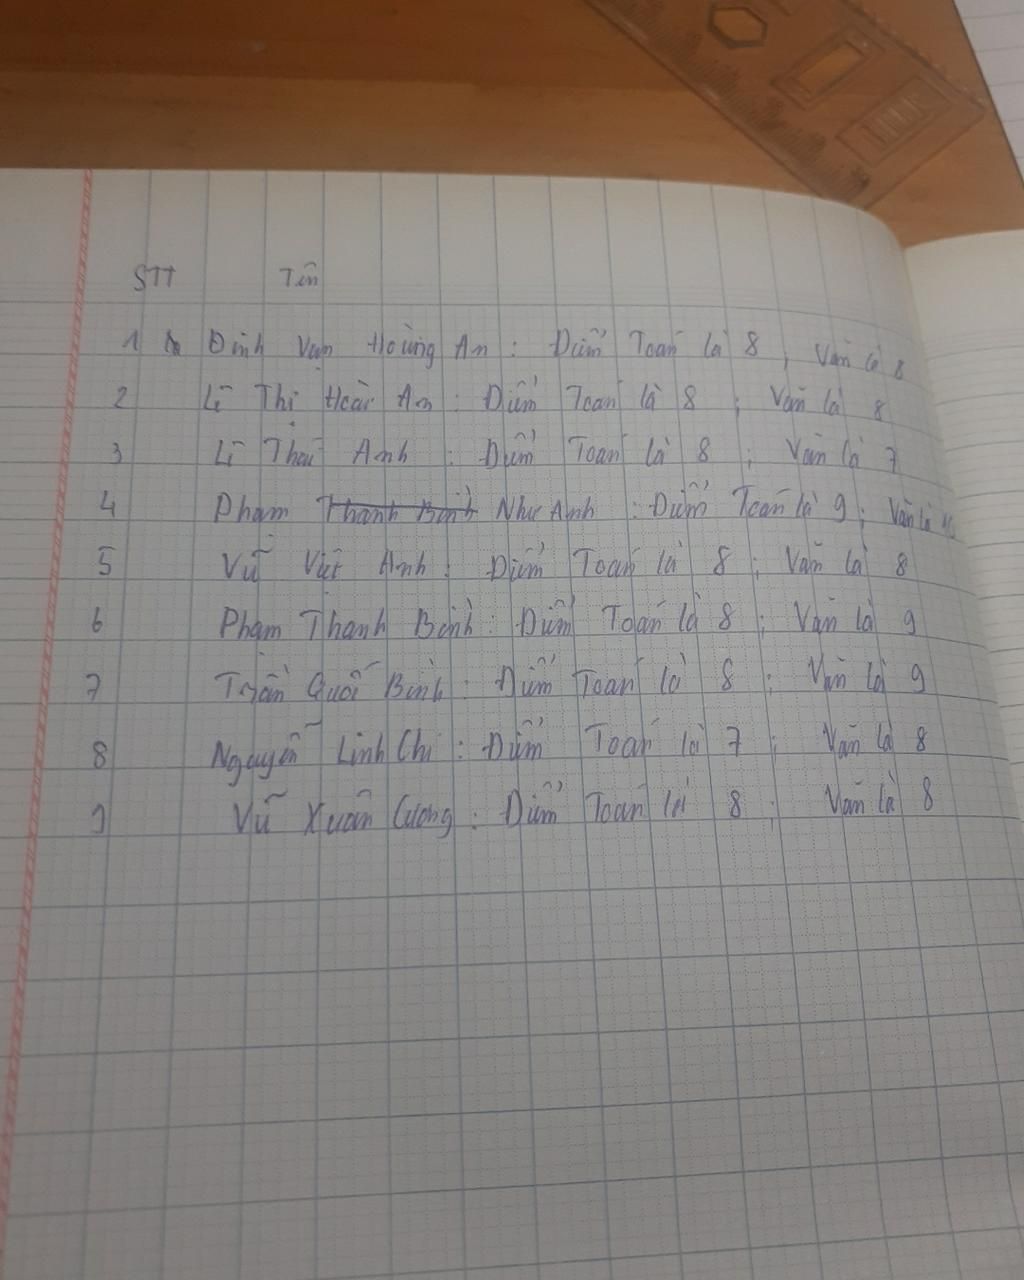 STT Tên
1 Đinh Vạn Hoàng An : Điểm Toán là 8 ; Văn là 8
2 Lê Thị Hoài An : Điểm Toán là 8 ; Văn là 8
3 Lê Thái Anh : Điểm Toán là 8 ; Văn là 7
4 Phạm Thanh Bình Như Anh : Điểm Toán là 9 ; Văn là
5 Vũ Việt Anh : Điểm Toán là 8 ; Văn là 8
6 Phạm Thanh Bình : Điểm Toán là 8 ; Văn là 9
7 Trần Quốc Bình : Điểm Toán là 8 ; Văn là 9
8 Nguyễn Linh Chi : Điểm Toán là 7 ; Văn là 8
9 Vũ Xuân Cương : Điểm Toán là 8 ; Văn là 8